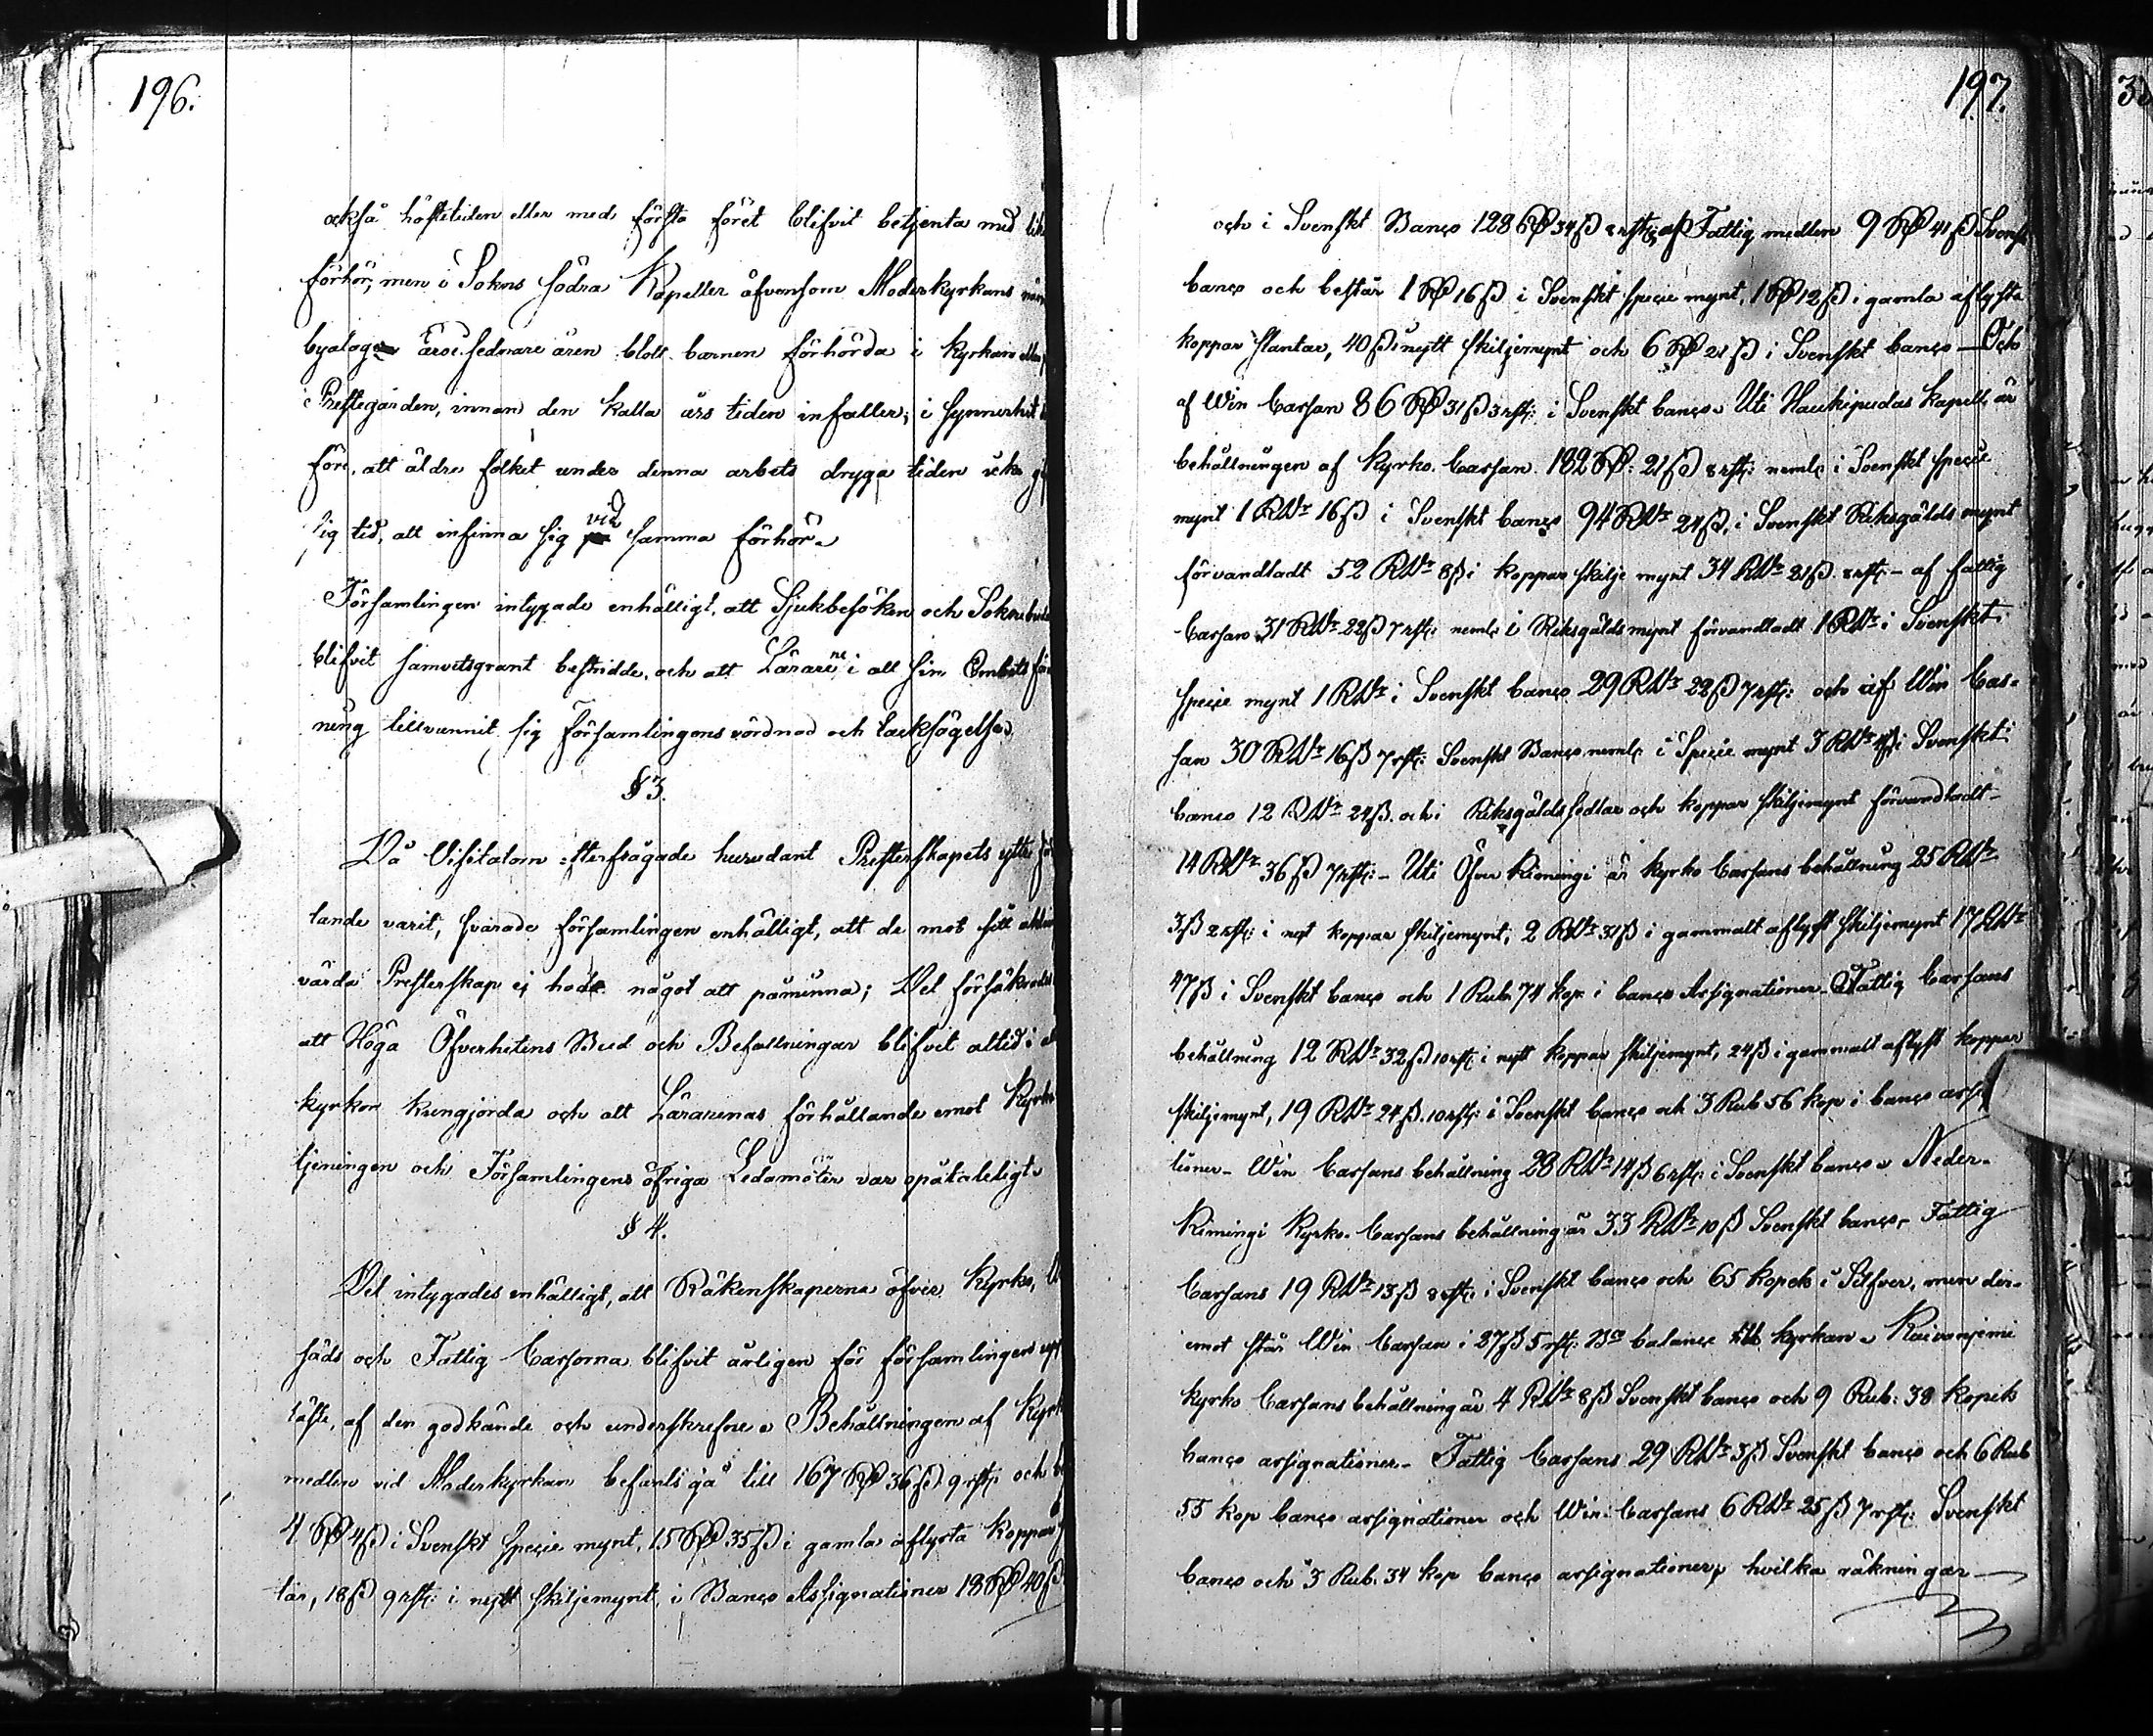 196.
också hösttiden eller med första föret blifvit betjenta med
förhör, men i Soknes södra Kapeller äfvensom Moderkyrkans
byalag ären blott barnen förhörda i kyrkan
i Prestegården, innan den kalla års tiden infaller, i synnerhet
före, att äldre folket under denna arbets dryga tiden icke
sig tid, att infinna sig vid samma förhör.
Församlingen intygade enhälligt, att Sjukbesöken och
blifvit samvetsgrant bestridde, och att Lärarene i all sin Embets
ning tillvunnit sig församlingens vördnad och tacksägelse.
§ 3.
Då Visitatorn efterfrågade hurudant Presterskapets yttre
lande varit, svarade församlingen enhälligt, att de mot sitt
värda Presterskap ej hade något att påminna; Det försäkrades
att Höga Öfverhetens Bud och Befallningar blifvit altid i
kyrkon kungjorda och att Lärarenas förhållande emot Kyrko
tjeningen och Församlingens öfriga Ledamöter var opåtaleligt.
§ 4.
Det intygades enhälligt, att Räkenskaperna öfver Kyrko,
säds och Fattig Cassorna blifvit årligen för församlingen
läste, af den godkände och underskrefne. Behållningen af
medlen vid Moderkyrkan befants gå till 167 RD 36 ß 9 rst: och
4 RD 4 ß i Svenskt specie mynt, 15 RD 35 ß i gamla aflysta koppar
tar, 18 ß 9 rst: i nytt skiljemynt, i Banco Assignationer 18 RD 40 ß
197.
och i Svenskt Banco 128 RD 34 ß 8 rst: af Fattig medlen 9 RD 41 ß Svenskt
banco och består 1 RD 16 ß i Svenskt specie mynt, 1 RD 12 ß i gamla aflysta
koppar slantar, 40 ß i nytt skiljemynt och 6 RD 21 ß i Svenskt banco — Och
af Win Cassan 86 RD 31 ß 3 rst: i Svenskt banco. Uti Haukipudas Kapell är
behållningen af Kyrko Cassan 182 RD: 21 ß 8 rst: neml: i Svenskt specie
mynt 1 RDr 16 ß i Svenskt banco 94 RDr 24 ß, i Svenskt Riksgälds mynt
förvandladt 52 RDr 8 ß i koppar skilje mynt 34 RDr 21 ß 8 rst: — af fattig
Cassan 31 RDr 22 ß 7 rst: neml: i Riksgälds mynt förvandladt 1 RDr i Svenskt
specie mynt 1 RDr i Svenskt banco 29 RDr 22 ß 7 rst: och af Win Cas-
san 30 RDr 16 ß 7 rst: Svenskt Banco neml: i Specie mynt 3 RDr i Svenskt
banco 12 RDr 24 ß. och i Riksgälds sedlar och koppar skiljemynt förvandladt —
14 RDr 36 ß 7 rst: — Uti Öfver Kimingi är kyrko Cassans behållning 25 RDr
3 ß 2 rst: i nytt koppar skiljemynt, 2 RDr 31 ß i gammalt aflyst skiljemynt 17 RDr
47 ß i Svenskt banco och 1 Rub. 74 kop i banco Assignationer — Fattig Cassans
behållning 12 RDr 32 ß 10 rst: i nytt koppar skiljemynt, 24 ß i gammalt aflyst koppar
skiljemynt, 19 RDr 24 ß. 10 rst: i Svenskt banco och 3 Rub 56 kop i banco
tioner — Win Cassans behållning 28 RDr 14 ß 6 rst: i Svenskt banco. Neder-
Kimingi Kyrko Cassans behållning är 33 RDr 10 ß Svenskt banco, Fattig
Cassans 19 RDr 13 ß 8 rst: i Svenskt banco och 65 kopek i Silfver, men der-
emot står Win Cassan i 27 ß 5 rst: Bco balance till kyrkan. Kuivaniemi
kyrko Cassans behållning är 4 RDr 8 ß Svenskt banco och 9 Rub: 38 kopek
banco assignationer — Fattig Cassans 29 RDr 3 ß Svenskt banco och 6 Rub
55 kop banco assignationer och Win Cassans 6 RDr 25 ß 7 rst: Svenskt
banco och 3 Rub. 34 kop banco assignationer, hvilka räkningar —